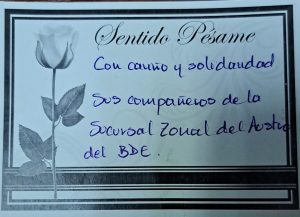 Sentido Pésame
Con cariño y solidaridad
Sus compañeros de la
Sucursal Zonal del Austro
del BDE.